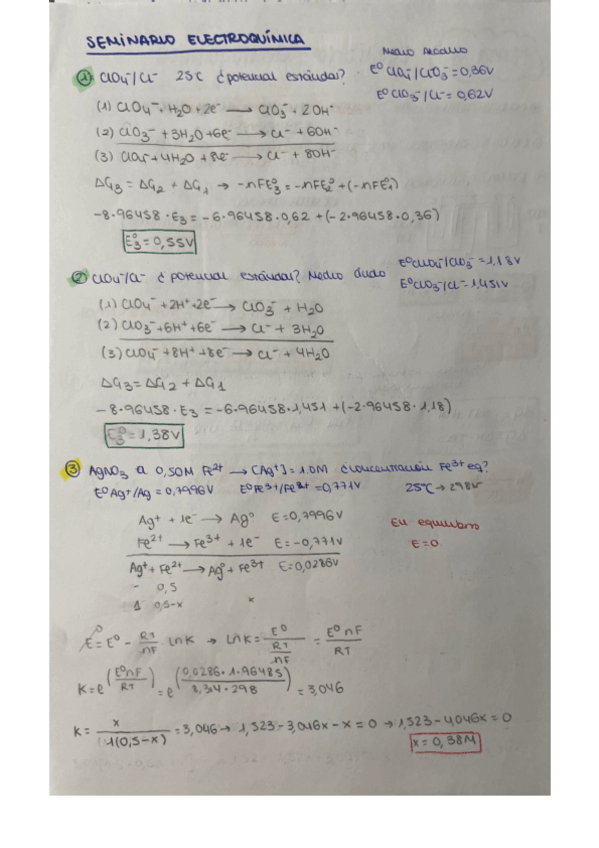 SEMINARIO ELECTROQUÍMICA
Medio básico
① ClO4⁻/Cl⁻ 25C ¿potencial estándar? · E⁰ ClO4⁻/ClO3⁻=0,36V
E⁰ ClO3⁻/Cl⁻=0,62V
(1) ClO4⁻ + H2O + 2e⁻ → ClO3⁻ + 2OH⁻
(2) ClO3⁻ + 3H2O + 6e⁻ → Cl⁻ + 6OH⁻
(3) ClO4⁻ + 4H2O + 8e⁻ → Cl⁻ + 8OH⁻
ΔG3 = ΔG2 + ΔG1 → -nFE3⁰ = -nFE2⁰ + (-nFE1⁰)
-8·96458·E3 = -6·96458·0,62 + (-2·96458·0,36)
E3⁰ = 0,55V
② ClO4⁻/Cl⁻ ¿potencial estándar? Medio ácido E⁰ClO4⁻/ClO3⁻=1,18V
E⁰ClO3⁻/Cl⁻=1,451V
(1) ClO4⁻ + 2H⁺ + 2e⁻ → ClO3⁻ + H2O
(2) ClO3⁻ + 6H⁺ + 6e⁻ → Cl⁻ + 3H2O
(3) ClO4⁻ + 8H⁺ + 8e⁻ → Cl⁻ + 4H2O
ΔG3 = ΔG2 + ΔG1
-8·96458·E3 = -6·96458·1,451 + (-2·96458·1,18)
E3⁰ = 1,38V
③ AgNO3 a 0,50M Fe²⁺ → [Ag⁺]=1.0M ¿concentración Fe³⁺ eq?
E⁰Ag⁺/Ag = 0,7996V E⁰Fe³⁺/Fe²⁺=0,771V 25ºC → 298K
Ag⁺ + 1e⁻ → Ag⁰ E=0,7996V
En equilibrio
Fe²⁺ → Fe³⁺ + 1e⁻ E=-0,771V
E=0
Ag⁺ + Fe²⁺ → Ag⁰ + Fe³⁺ E=0,0286V
- 0,5
1 0,5-x x
E = E⁰ - RT/nF lnK → lnK = E⁰/(RT/nF) = E⁰nF/RT
K = e^(E⁰nF/RT) = e^(0,0286·1·96485/8,314·298) = 3,046
K = x/(1(0,5-x)) = 3,046 → 1,523-3,046x-x=0 → 1,523-4,046x=0
x=0,38M